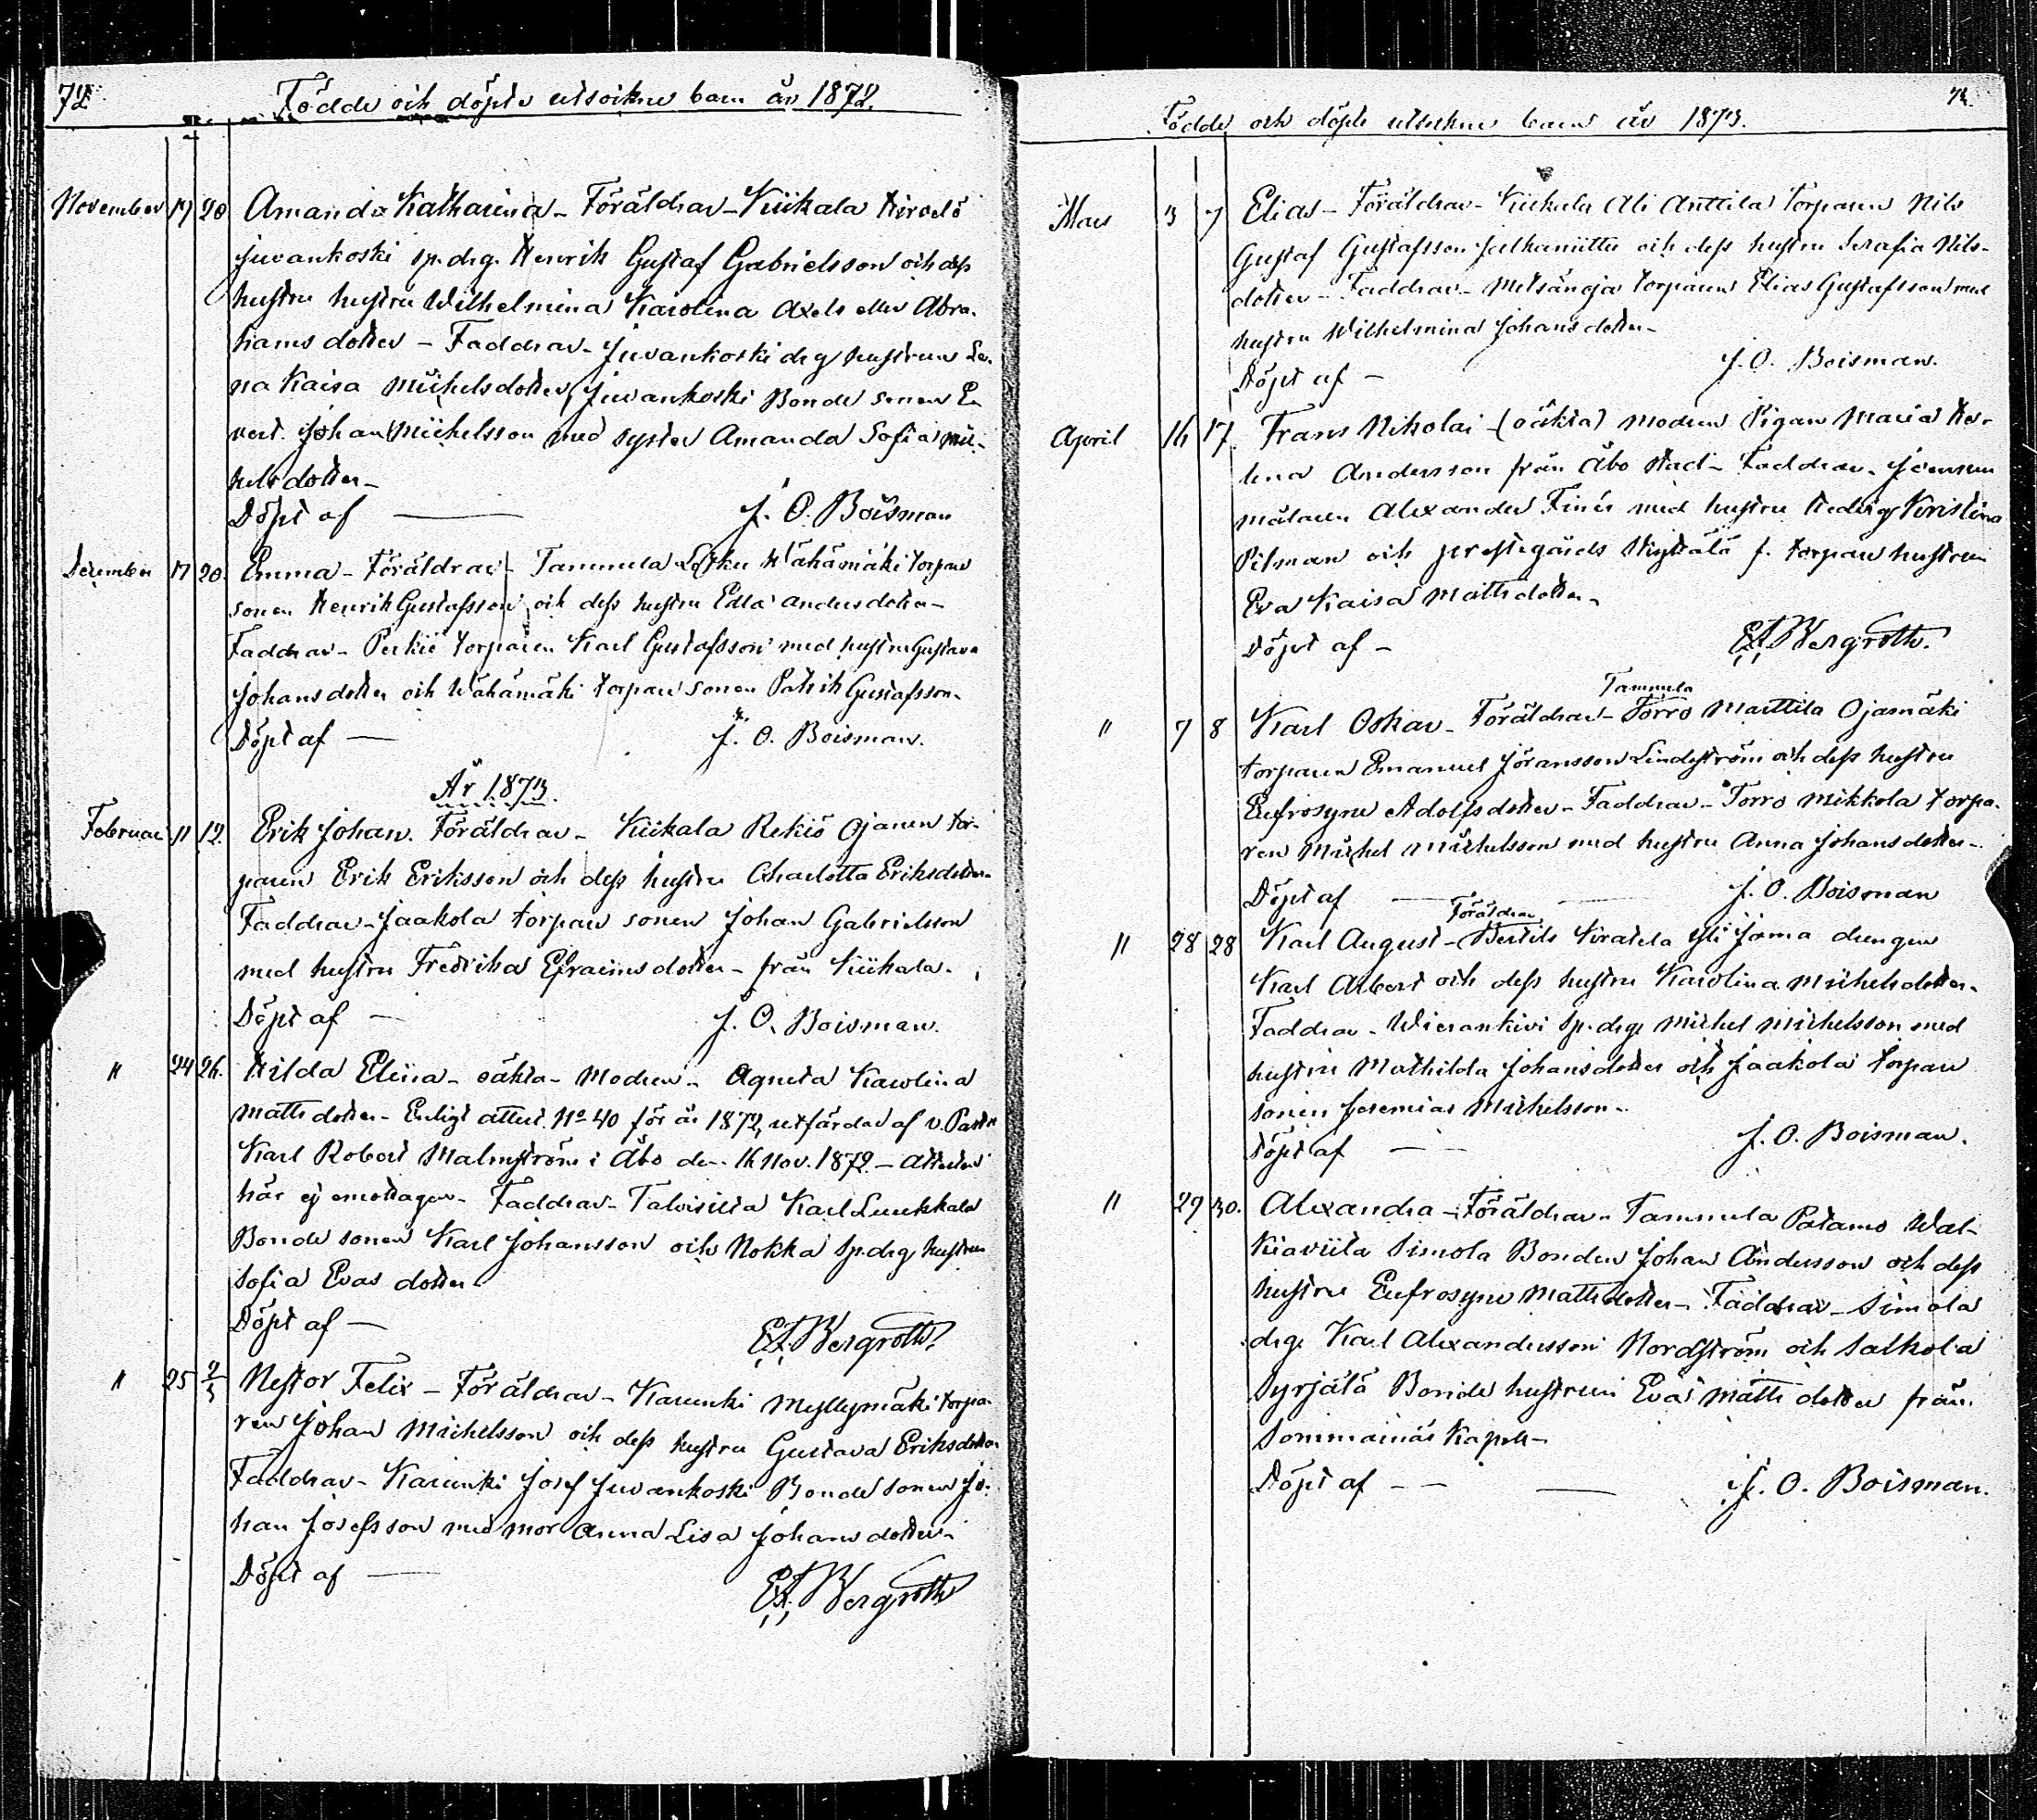 72
Födde och döpte utsockne barn år 1872.
November 17 20 Amanda Katharina - Föräldrar - Kiikala Hirvelä
Juvankoski sp. drg. Henrik Gustaf Gabrielsson och dess
hustru hustru Wilhelmina Karolina Axels eller Abra-
hams dotter - Faddrar - Juvankoski drg hustrun Le-
na Kaisa Michelsdotter, Juvankoski Bonde sonen E
vert Johan Michelsson med syster Amanda Sofia Mic-
hels dotter -
Döpt af — J. O. Boisman
December 17 20. Emma - Föräldrar - Tammela Letku Wähämäki torpare
sonen Henrik Gustafsson och dess hustru Edla Anders dotter -
Faddrar - Perkiö torparen Karl Gustafsson med hustru Gustava
Johansdotter och Wähämäki torpare sonen Patrik Gustafsson.
Döpt af — J. O. Boisman.
År 1873.
Februari 11 12. Erik Johan. Föräldrar - Kiikala Rekiö Ojanen tor-
paren Erik Eriksson och dess hustru Charlotta Eriksdotter -
Faddrar - Jaakola torpare sonen Johan Gabrielsson
med hustru Fredrika Efraims dotter - från Kiikala.
Döpt af — J. O. Boisman.
" 24 26. Hilda Eliina - oäkta - Modren - Agneta Karolina
Matts dotter - Enligt attest No 40 för år 1872, utfärdad af v. Pastor
Karl Robert Malmström i Åbo den 16 Nov. 1872 - Attesten
här ej emottagen - Faddrar - Talvisilta Karl Luukkala
Bonde sonen Karl Johansson och Nokka sp. drg hustrun
Sofia Evas dotter
Döpt af — E. F. Bergroth.
" 25 2/3 Nestor Felix - Föräldrar - Karunki Myllymäki torpa-
ren Johan Michelsson och dess hustru Gustava Eriksdotter
Faddrar - Karunki Josef Juvankoski Bonde sonen Jo-
han Josefsson med mor Anna Lisa Johans dotter -
Döpt af — E. F. Bergroth
Födde och döpte utsockne barn år 1873.
Mars 3 7 Elias - Föräldrar - Kiikala Ali Anttila torparen Nils
Gustaf Gustafsson Jalkaniittu och dess hustru Serafia Nils-
dotter - Faddrar - Metsänoja torparen Elias Gustafsson med
hustru Wilhelmina Johans dotter -
Döpt af — J. O. Boisman.
April 16 17 Frans Nikolai - (oäkta) modren Pigan Maria He-
lena Andersson från Åbo stad - Faddrar -
målaren Alexander Finér med hustru Hedvig Kristina
Pihman och prestegårds f. torpare hustrun
Eva Kaisa Mattsdotter -
Döpt af - E. F. Bergroth.
Tammela
" 7 8 Karl Oskar - Föräldrar - Torro Marttila Ojamäki
torparen Emanuel Göransson Lindström och dess hustru
Eufrosyne Adolfsdotter - Faddrar - Torro Mikkola torpa-
ren Michel Michelsson med hustru Anna Johansdotter -
Döpt af — J. O. Boisman
Föräldrar
" 28 28 Karl August - Bertils Kiratala Yli Jama drengen
Karl Albert och dess hustru Karolina Michelsdotter -
Faddrar - Wierankivi sp. drg. Michel Michelsson med
hustru Mathilda Johansdotter och Jaakola torpare
sonen Jeremias Michelsson -
Döpt af — J. O. Boisman.
" 29 30. Alexandra - Föräldrar - Tammela Patamo Wal-
kiaviita Simola Bonden Johan Andersson och dess
hustru Eufrosyne Mattsdotter - Faddrar - Simola
drg. Karl Alexandersson Nordström och Salkola
Syrjälä Bonde hustrun Eva Matts dotter från
Sommarnäs Kapell -
Döpt af — J. O. Boisman.